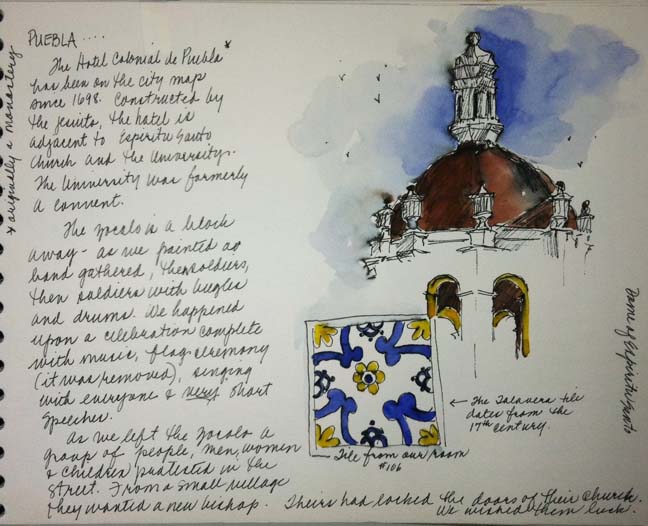 PUEBLA ....
The Hotel Colonial de Puebla*
has been on the city map
since 1698. Constructed by
the Jesuits, the hotel is
adjacent to Espiritu Santo
Church and the University.
The University was formerly
a convent.
The zocalo is a block
away - as we painted a
band gathered, then soldiers,
then soldiers with bugles
and drums. We happened
upon a celebration complete
with music, flag ceremony
(it was removed), singing
with everyone & very short
speeches.
As we left the zocalo a
group of people, men, women
& children protested in the
street. From a small village
they wanted a new bishop. Theirs had locked the doors of their church.
We wished them luck.
* originally a monastery
← The Talavera tile
dates from the
17th century.
Tile from our room
#106
Dome of Espiritu Santo